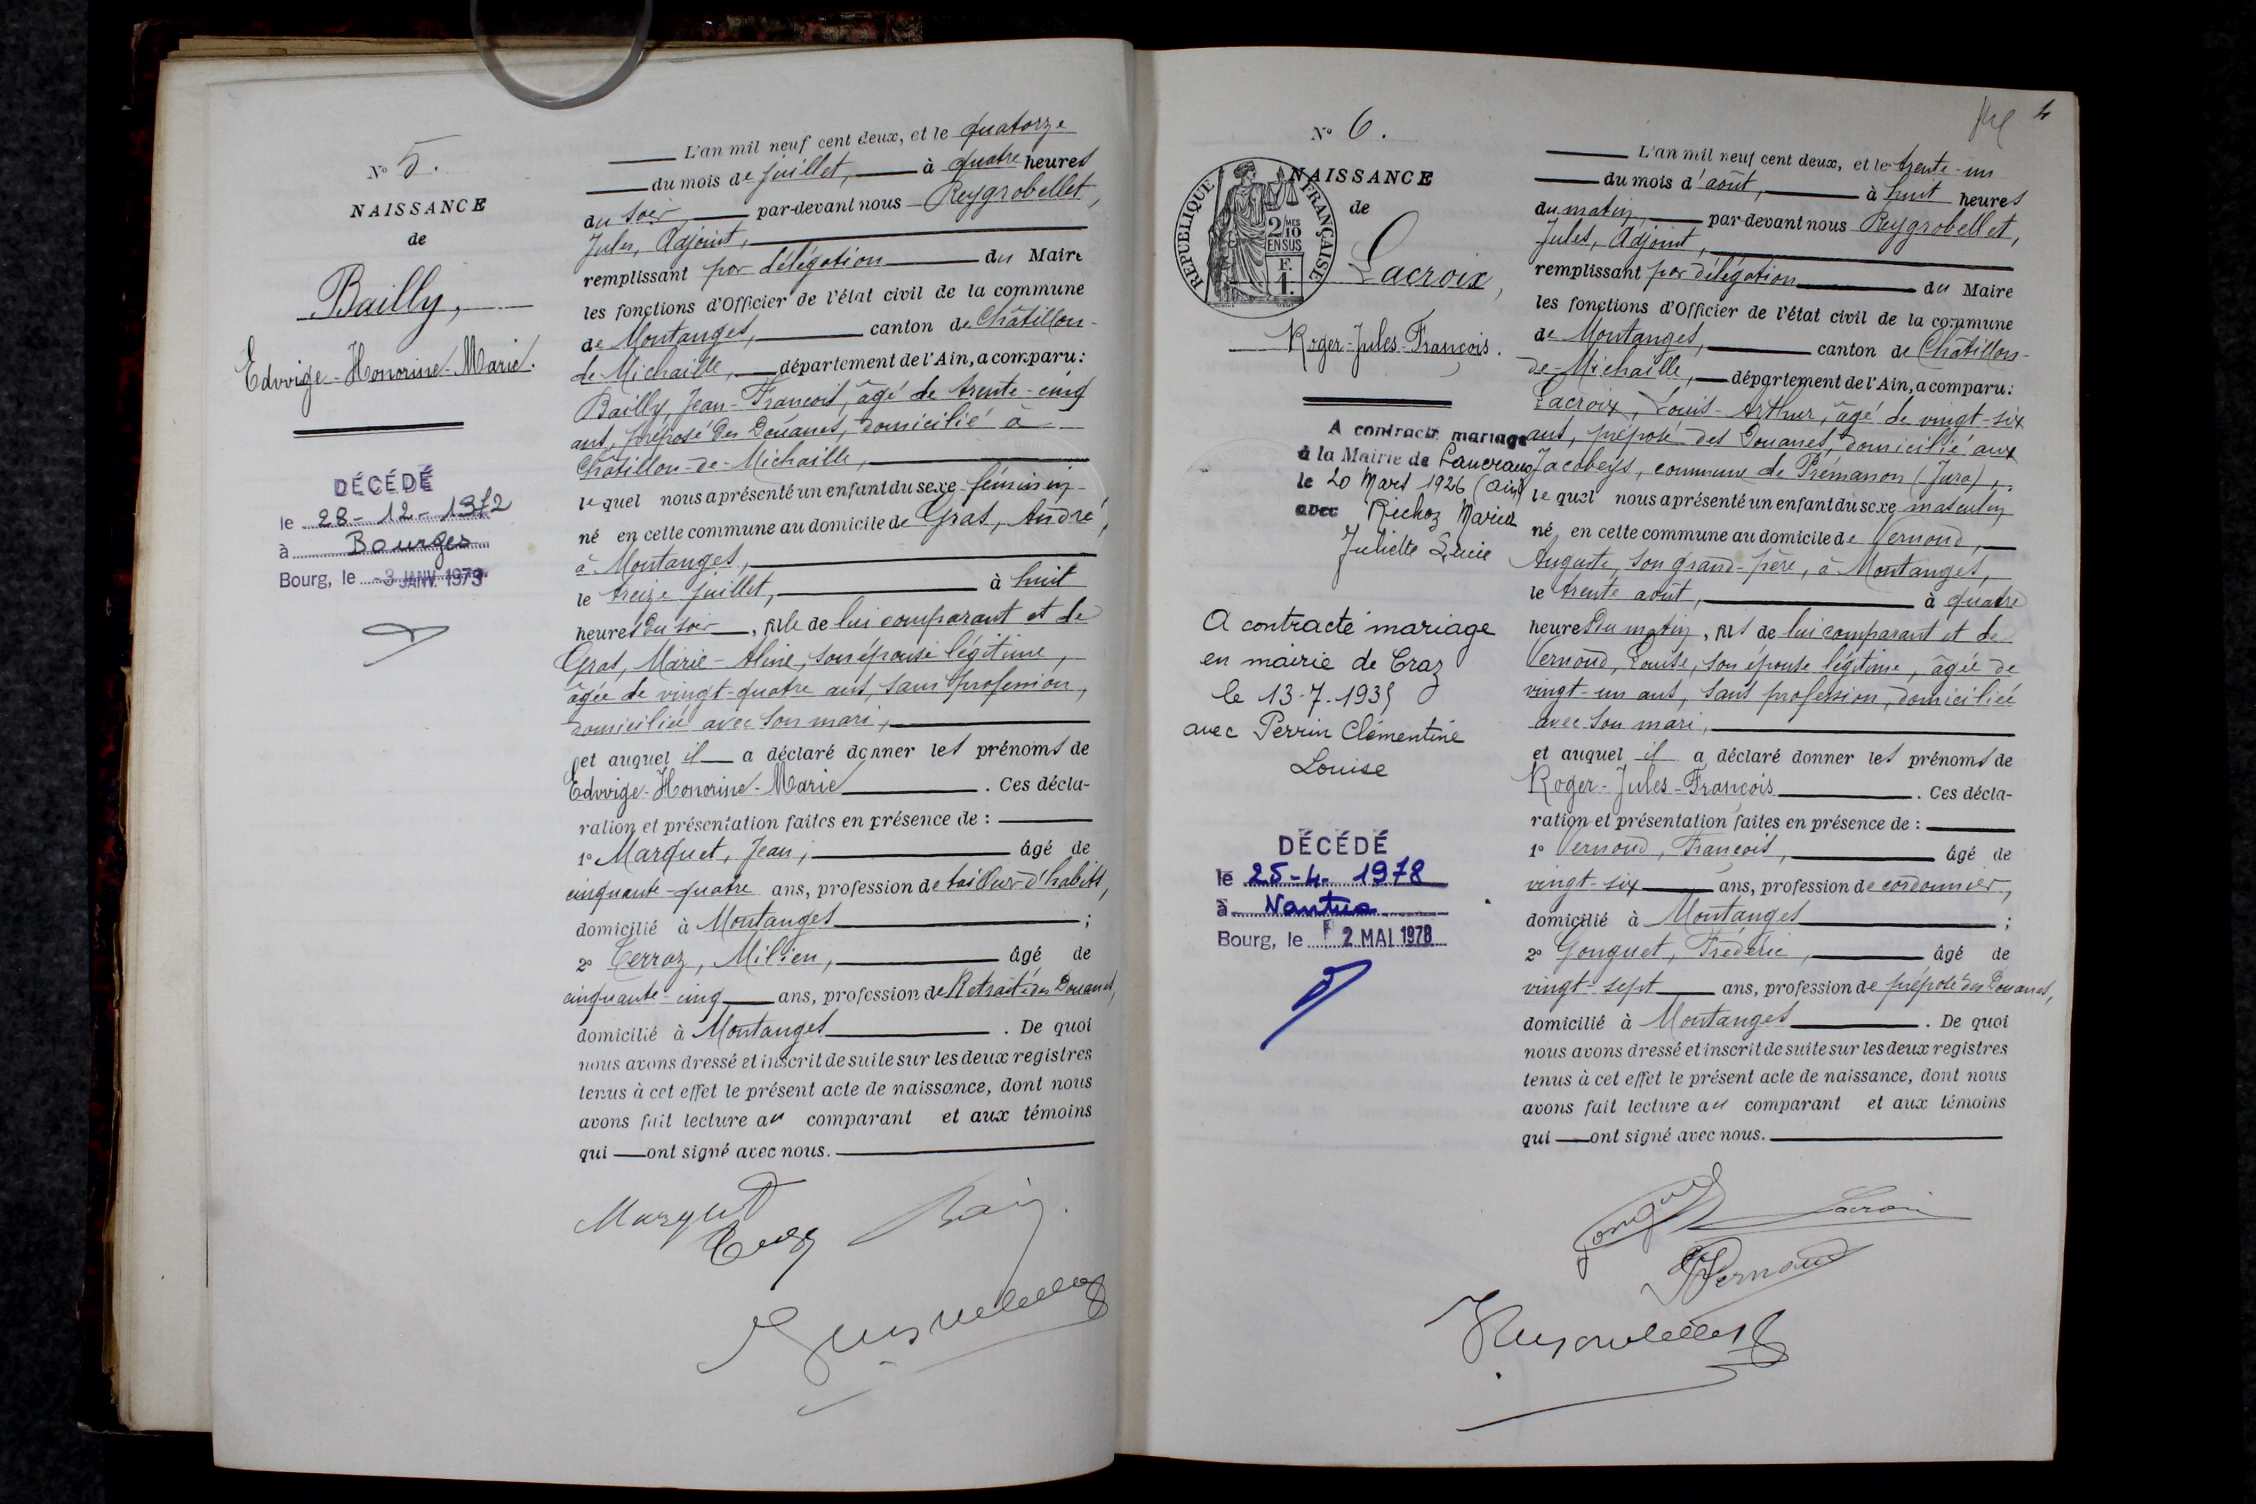 N° 5.
NAISSANCE
de
Bailly,
Edwige-Honorine-Marie.
DÉCÉDÉ
le 28-12-1972
à Bourges
Bourg, le -3 JANV. 1973
L'an mil neuf cent deux, et le quatorze
du mois de juillet, à quatre heures
du soir, par-devant nous Reygrobellet,
Jules, Adjoint,
remplissant par délégation du Maire
les fonctions d'Officier de l'état civil de la commune
de Montanges, canton de Châtillon-
de-Michaille, département de l'Ain, a comparu:
Bailly, Jean-François, âgé de trente-cinq
ans, préposé des Douanes, domicilié à
Châtillon-de-Michaille,
lequel nous a présenté un enfant du sexe féminin
né en cette commune au domicile de Gras, André,
à Montanges,
le treize juillet, à huit
heures du soir, fille de lui comparant et de
Gras, Marie-Aline, son épouse légitime,
âgée de vingt-quatre ans, sans profession,
domiciliée avec son mari,
et auquel il a déclaré donner les prénoms de
Edwige-Honorine-Marie. Ces décla-
ration et présentation faites en présence de :
1° Marquet, Jean, âgé de
cinquante-quatre ans, profession de tailleur d'habits,
domicilié à Montanges ;
2° Terraz, Milien, âgé de
cinquante-cinq ans, profession de Retraité des Douanes,
domicilié à Montanges. De quoi
nous avons dressé et inscrit de suite sur les deux registres
tenus à cet effet le présent acte de naissance, dont nous
avons fait lecture au comparant et aux témoins
qui ont signé avec nous.
Marquet
4
N° 6.
NAISSANCE
de
RÉPUBLIQUE FRANÇAISE
2/10 EN SUS
F. 1.
Lacroix,
Roger-Jules-François.
A contracté mariage
à la Mairie de Lancrans
le 20 Mars 1926 (Ain)
avec Richoz Maria
Juliette Lucie
A contracté mariage
en mairie de Craz
le 13-7-1935
avec Perrin Clémentine
Louise
DÉCÉDÉ
le 25-4-1978
à Nantua
Bourg, le 2 MAI 1978
L'an mil neuf cent deux, et le trente-un
du mois d'août, à huit heures
du matin, par-devant nous Reygrobellet,
Jules, Adjoint,
remplissant par délégation du Maire
les fonctions d'Officier de l'état civil de la commune
de Montanges, canton de Châtillon-
de-Michaille, département de l'Ain, a comparu:
Lacroix, Louis-Arthur, âgé de vingt-six
ans, préposé des Douanes, domicilié aux
Jacobeys, commune de Prémanon (Jura),
lequel nous a présenté un enfant du sexe masculin
né en cette commune au domicile de Vernoud,
Auguste, son grand-père, à Montanges,
le trente août, à quatre
heures du matin, fils de lui comparant et de
Vernoud, Louise, son épouse légitime, âgée de
vingt-un ans, sans profession, domiciliée
avec son mari,
et auquel il a déclaré donner les prénoms de
Roger-Jules-François. Ces décla-
ration et présentation faites en présence de :
1° Vernoud, François, âgé de
vingt-six ans, profession de cordonnier,
domicilié à Montanges ;
2° Gonguet, Frédéric, âgé de
vingt-sept ans, profession de préposé des Douanes,
domicilié à Montanges. De quoi
nous avons dressé et inscrit de suite sur les deux registres
tenus à cet effet le présent acte de naissance, dont nous
avons fait lecture au comparant et aux témoins
qui ont signé avec nous.
Gonguet Lacroix
Vernoud
Reygrobellet